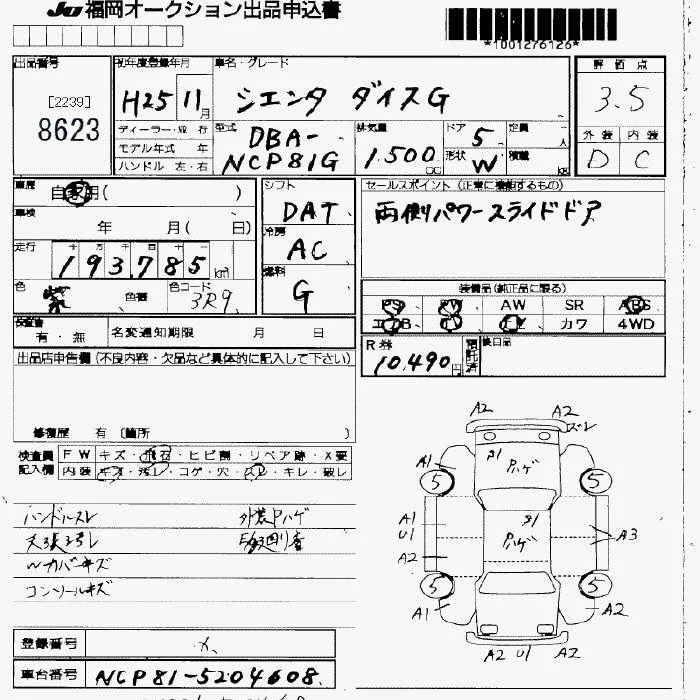 JU 福岡オークション出品申込書
*1001276126*
出品番号
[2239]
8623
初年度登録年月
H25 11月
車名・グレード
シエンタ ダイスG
評価点
3.5
外装 内装
D C
ディーラー・並行
モデル年式 年
ハンドル 左・右
型式
DBA-
NCP81G
排気量
1.500
cc
ドア 5
定員 人
形状 W
積載 kg
車歴
自家用( )
車検
年 月( 日)
走行
十 万 千 百 十 一
193,785 km
色 紫
色替
色コード 3R9
シフト
DAT
冷房
AC
燃料
G
セールスポイント(正常に機能するもの)
両側パワースライドドア
装備品(純正品に限る)
PS PW AW SR ABS
エアB カワ 4WD
保証書
有・無
名変通知期限 月 日
R券
10,490円
預託済
後日品
出品店申告欄(不良内容・欠品など具体的に記入して下さい)
修復歴 有 (箇所 )
検査員 FW キズ・飛石・ヒビ割・リペア跡・X要
記入欄 内装 キズ・汚レ・コゲ・穴・スレ・キレ・破レ
ハンドルスレ 外装Pハゲ
天張ヨゴレ
Wカバーキズ
コンソールキズ
A2 A2
ズレ
A1 P1 Pハゲ
5 5
A1 U1 P1 Pハゲ A3
A2
5 5
A1 A2
A2 U1 A2
登録番号
車台番号 NCP81-5204608